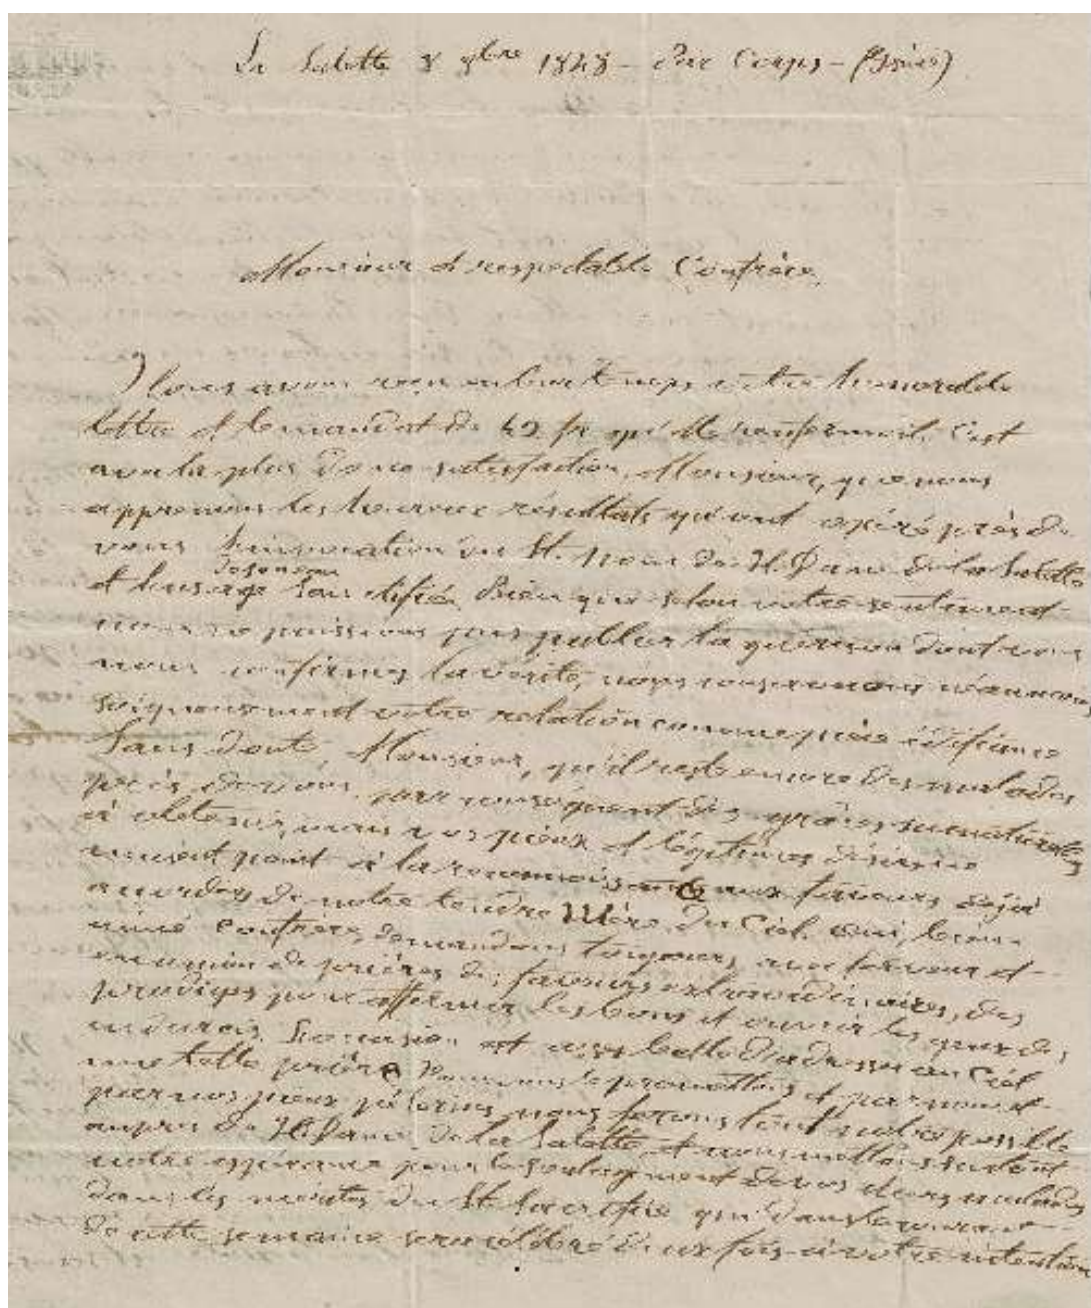 La Salette 8 8bre 1848 - Par Corps - (Isère)
Monsieur et respectable Confrère,
Nous avons reçu en leur temps votre honorable
lettre et le mandat de 42 fr qu'elle renfermait. C'est
avec la plus douce satisfaction, Monsieur, que nous
apprenons les heureux résultats qu'ont opéré près de
vous l'invocation du St. nom de N. Dame de la Salette
de son eau
et l'usage sanctifié. Bien que selon votre sentiment
nous ne puissions pas publier la guérison dont vous
nous confirmez la vérité, nous conserverons néanmoins
soigneusement votre relation comme pièce édifiante
Sans doute, Monsieur, qu'il reste encore des malades
près de vous, par conséquent des grâces surnaturelles
à obtenir, mais vos pieux et légitimes désirs ne
nuisent point à la reconnaissance aux faveurs déjà
accordées de notre tendre Mère du Ciel. Oui, bien
aimé Confrère, demandons toujours avec ferveur et
en union de prières des faveurs extraordinaires, des
prodiges pour affermir les bons et ouvrir les yeux des
endurcis. L'occasion est assez belle d'adresser au Ciel
une telle prière. Nous vous le promettons et par nous et
par nos pieux pèlerins nous ferons tout notre possible
auprès de N. Dame de la Salette, et nous mettons surtout
notre espérance pour le soulagement de vos chers malades
dans les mérites du St Sacrifice qui dans le courant
de cette semaine sera célébré deux fois à votre intention